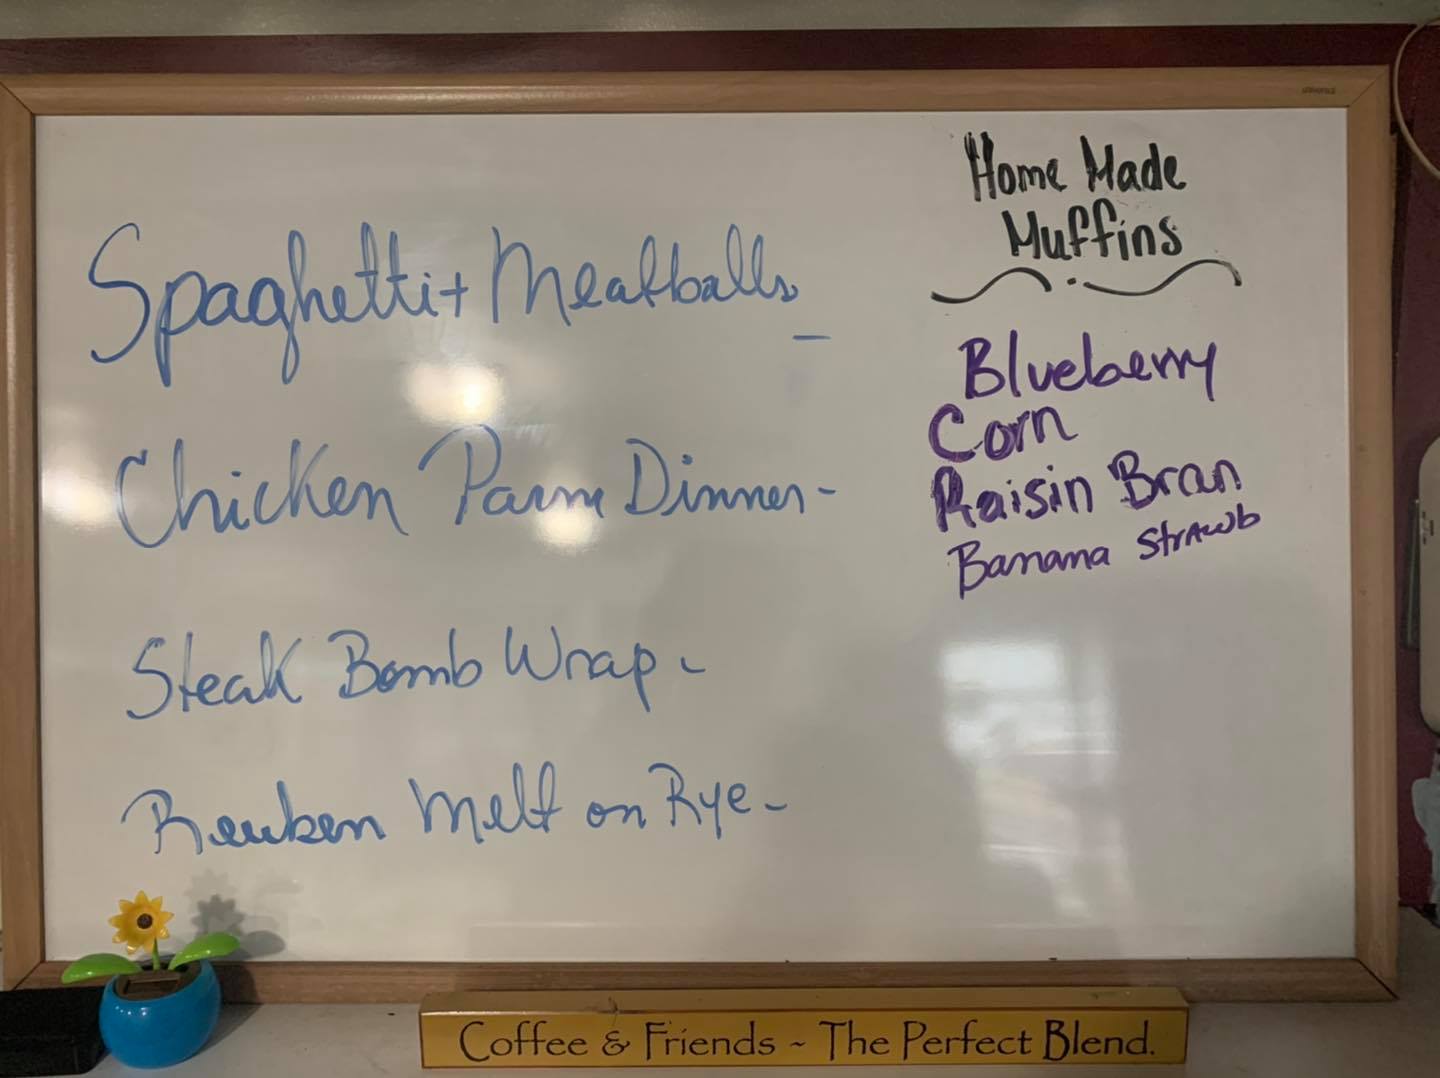 Spaghetti + Meatballs -
Chicken Parm Dinner -
Steak Bomb Wrap -
Reuben Melt on Rye -
Home Made
Muffins
Blueberry
Corn
Raisin Bran
Banana Strawb
Coffee & Friends ~ The Perfect Blend.